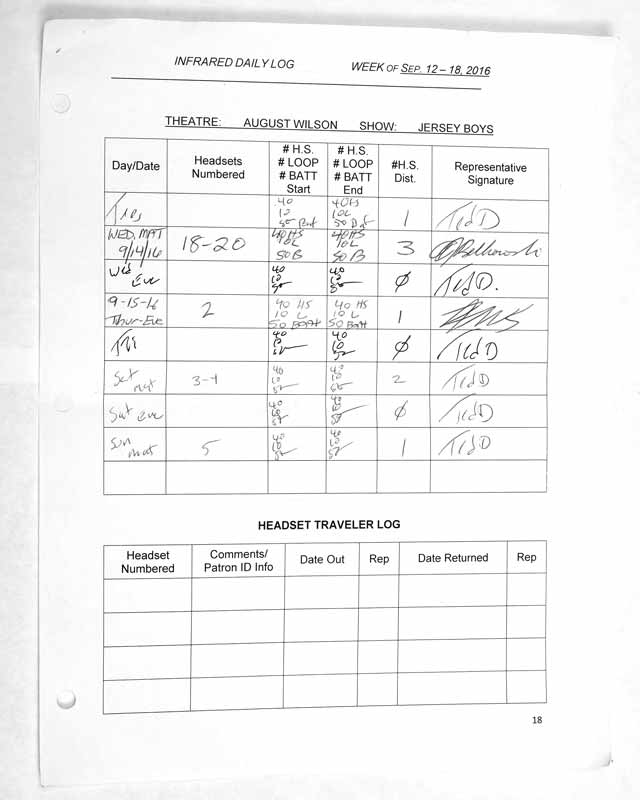 INFRARED DAILY LOG WEEK OF SEP. 12 – 18, 2016
THEATRE: AUGUST WILSON SHOW: JERSEY BOYS
Day/Date Headsets Numbered # H.S. # LOOP # BATT Start # H.S. # LOOP # BATT End #H.S. Dist. Representative Signature
Tues 40 10 50 Bat 40HS 10L 50 Bat 1 Ted D
WED, MAT 9/14/16 18-20 40HS 10L 50B 40HS 10L 50B 3
Wed Eve 40 10 50 40 10 50 Ø Ted D.
9-15-16 Thur-Eve 2 40 HS 10 L 50 BATT 40 HS 10 L 50 BATT 1
Fri 40 10 50 40 10 50 Ø Ted D
Sat mat 3-4 40 10 50 40 10 50 2 Ted D
Sat eve 40 10 50 40 10 50 Ø Ted D
Sun mat 5 40 10 50 40 10 50 1 Ted D
HEADSET TRAVELER LOG
Headset Numbered Comments/ Patron ID Info Date Out Rep Date Returned Rep
18